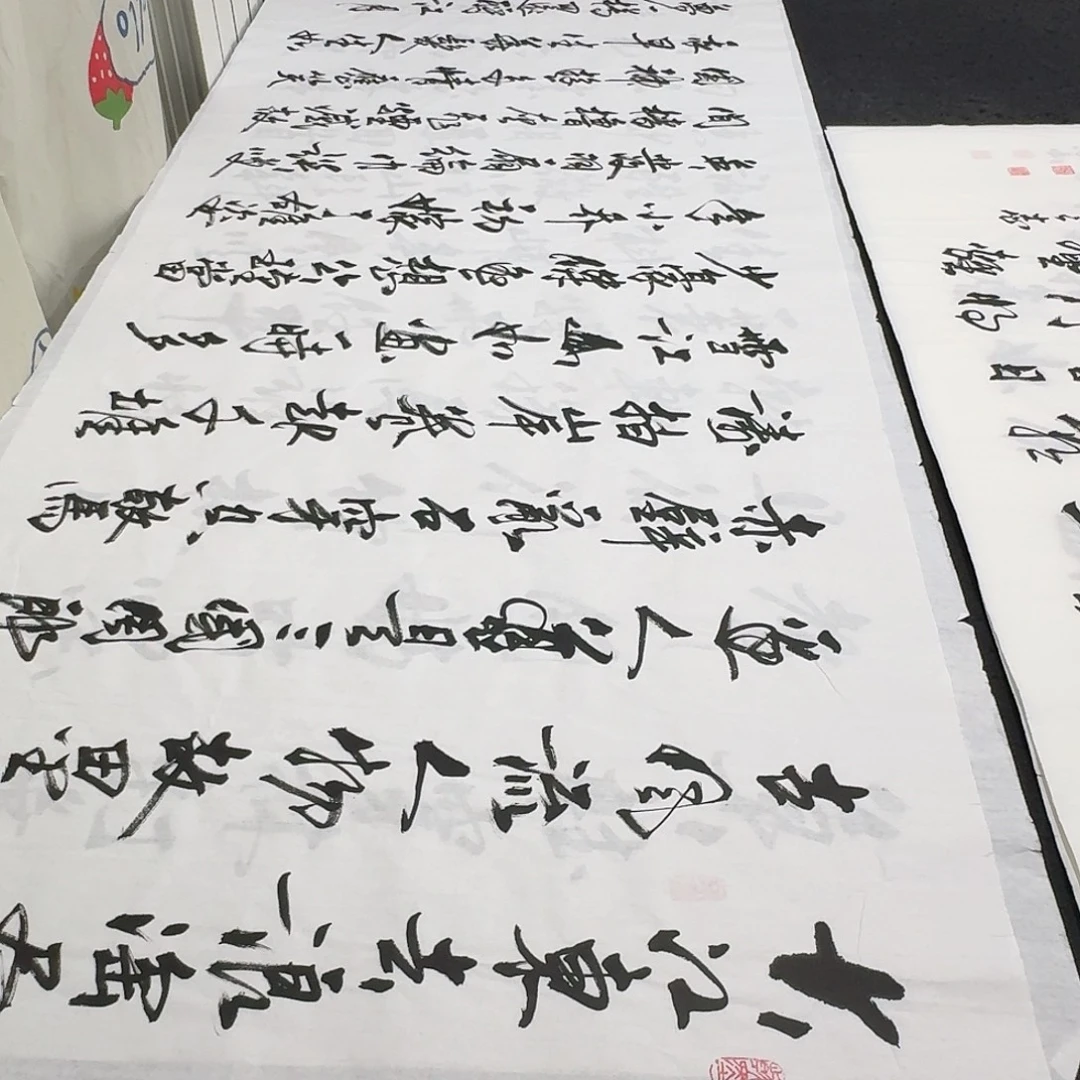 大江東去浪淘尽
古風流人物故壘
邊人道是三國周郎
赤壁亂石穿空驚
濤拍岸卷起千堆
雪江山如畫一時多
少豪傑遥想公瑾當
年小喬初嫁了雄姿
英發羽扇綸巾談笑
間檣櫓灰飛煙滅故
國神遊多情應笑
我早生華髮人生如
夢一樽還酹江月